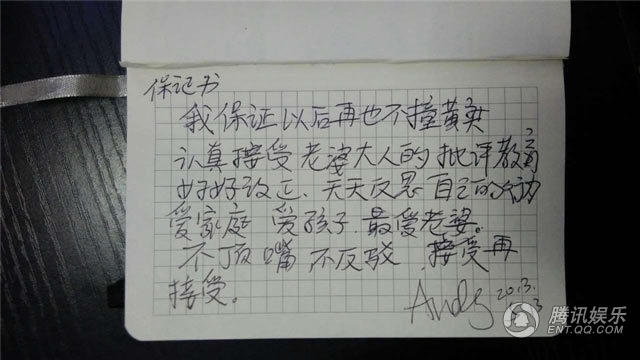 保证书
我保证以后再也不撞黄奕
认真接受老婆大人的批评教育
好好改正、天天反思自己的行为
爱家庭 爱孩子 最爱老婆。
不顶嘴 不反驳 接受再
接受。
Andy 2013.
腾讯娱乐
ENT.QQ.COM